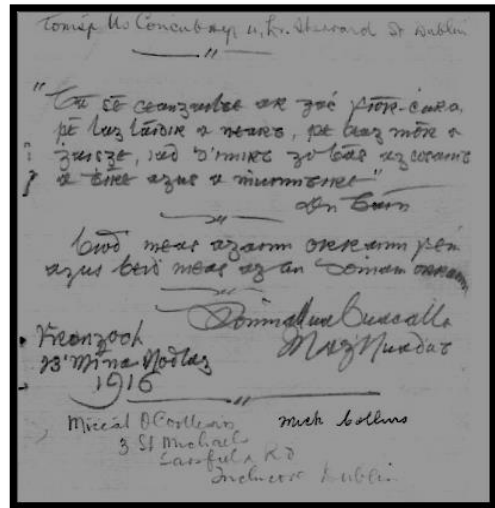 Tomás Ua Concubair 11, Lr. Sherrard St Dublin
"Tá sé ceangailte ar gac fíor-cara,
pé lag láidir a neart, pé beag mór a
gaisge, iad d'imirt go bás ag cosaint
a tíre agus a muinntire"
An
biod meas againn orrainn féin
agus beid meas ag an domain orrainn
Domnall Ua Buacalla
Mag Nuadat
Frongoch
Mí na Nodlag
1916
Micéal O Coileain Mick Collins
3 St Michaels
Sarsfield Rd
Inchicore Dublin